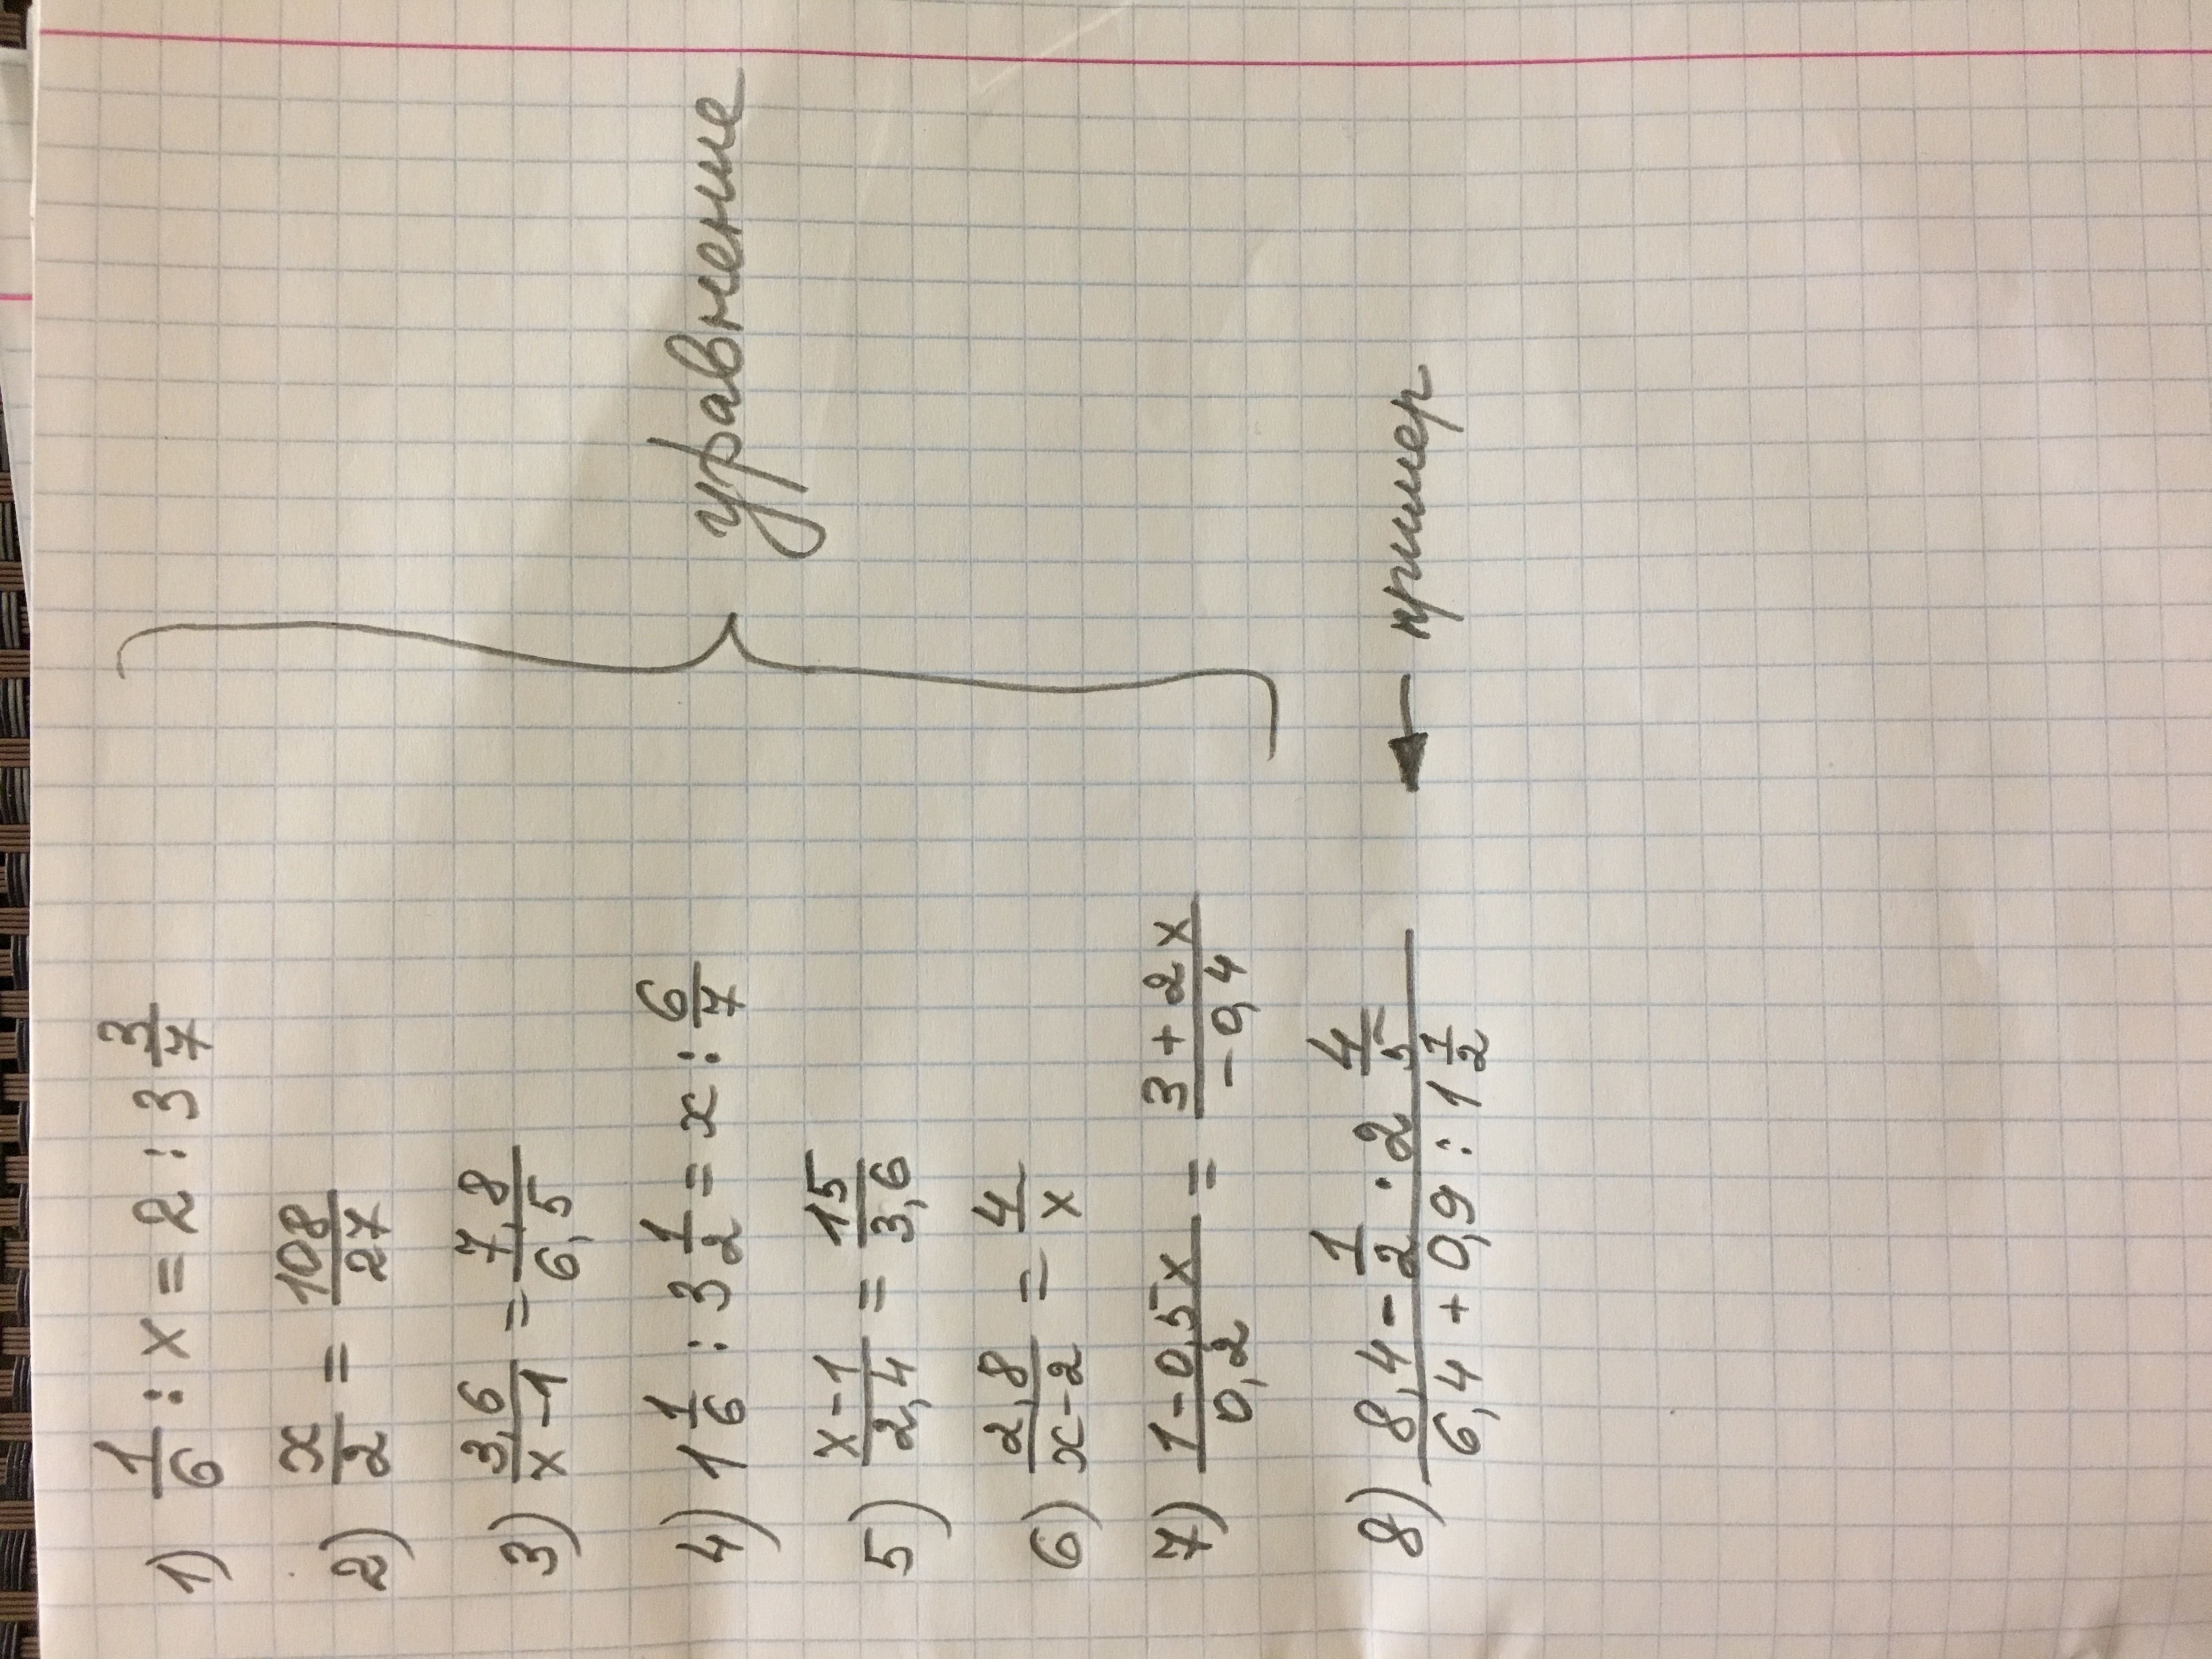 1) 1/6 : x = 2 : 3 3/7
2) x/2 = 108/27
3) 3,6/x-1 = 7,8/6,5
4) 1 1/6 : 3 1/2 = x : 6/7
уравнение
5) x-1/2,4 = 15/3,6
6) 2,8/x-2 = 4/x
7) 1-0,5x/0,2 = 3+2x/-0,4
8) 8,4 - 1/2 · 2 4/5 / 6,4 + 0,9 : 1 1/2 ← пример